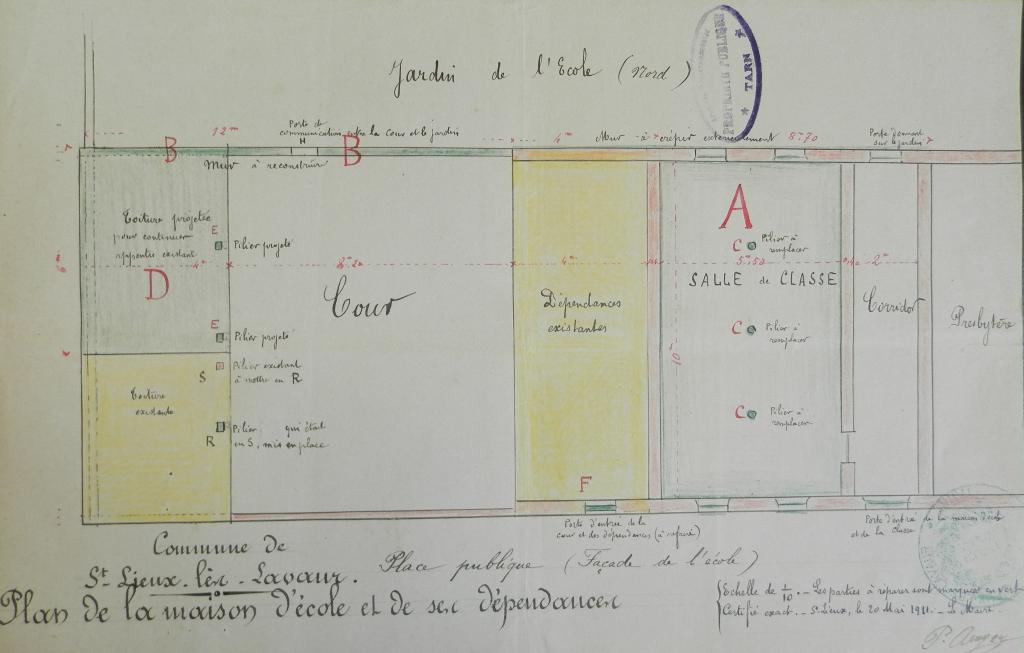 Jardin de l'Ecole (Nord)
PROPRIÉTÉ PUBLIQUE
* TARN *
12m
Porte de
communication entre la Cour et le jardin
H
4m
Mur à crépir extérieurement
8m70
Porte d'armant
sur le jardin
B
B
Mur à reconstruire
Toiture projetée
pour continuer
appentis existant
E
Pilier projeté
4m
D
8m20
Cour
E
Pilier projeté
S
Pilier existant
à mettre en R
Toiture
existante
R
Pilier qui était
en S, mis en place
4m
Dépendances
existantes
F
A
C
Pilier à
remplacer
5m50
SALLE de CLASSE
C
Pilier à
remplacer
10m
C
Pilier à
remplacer
2m
Corridor
Presbytère
Porte d'entrée de la
cour et des dépendances (à refaire)
Porte d'entrée de la maison d'école
et de la classe
Place publique (Façade de l'école)
Commune de
St Lieux-lès-Lavaur.
Plan de la maison d'école et de ses dépendances
Echelle de 1/10. — Les parties à réparer sont marquées en vert
Certifié exact. — St Lieux, le 20 Mai 1911. — Le Maire